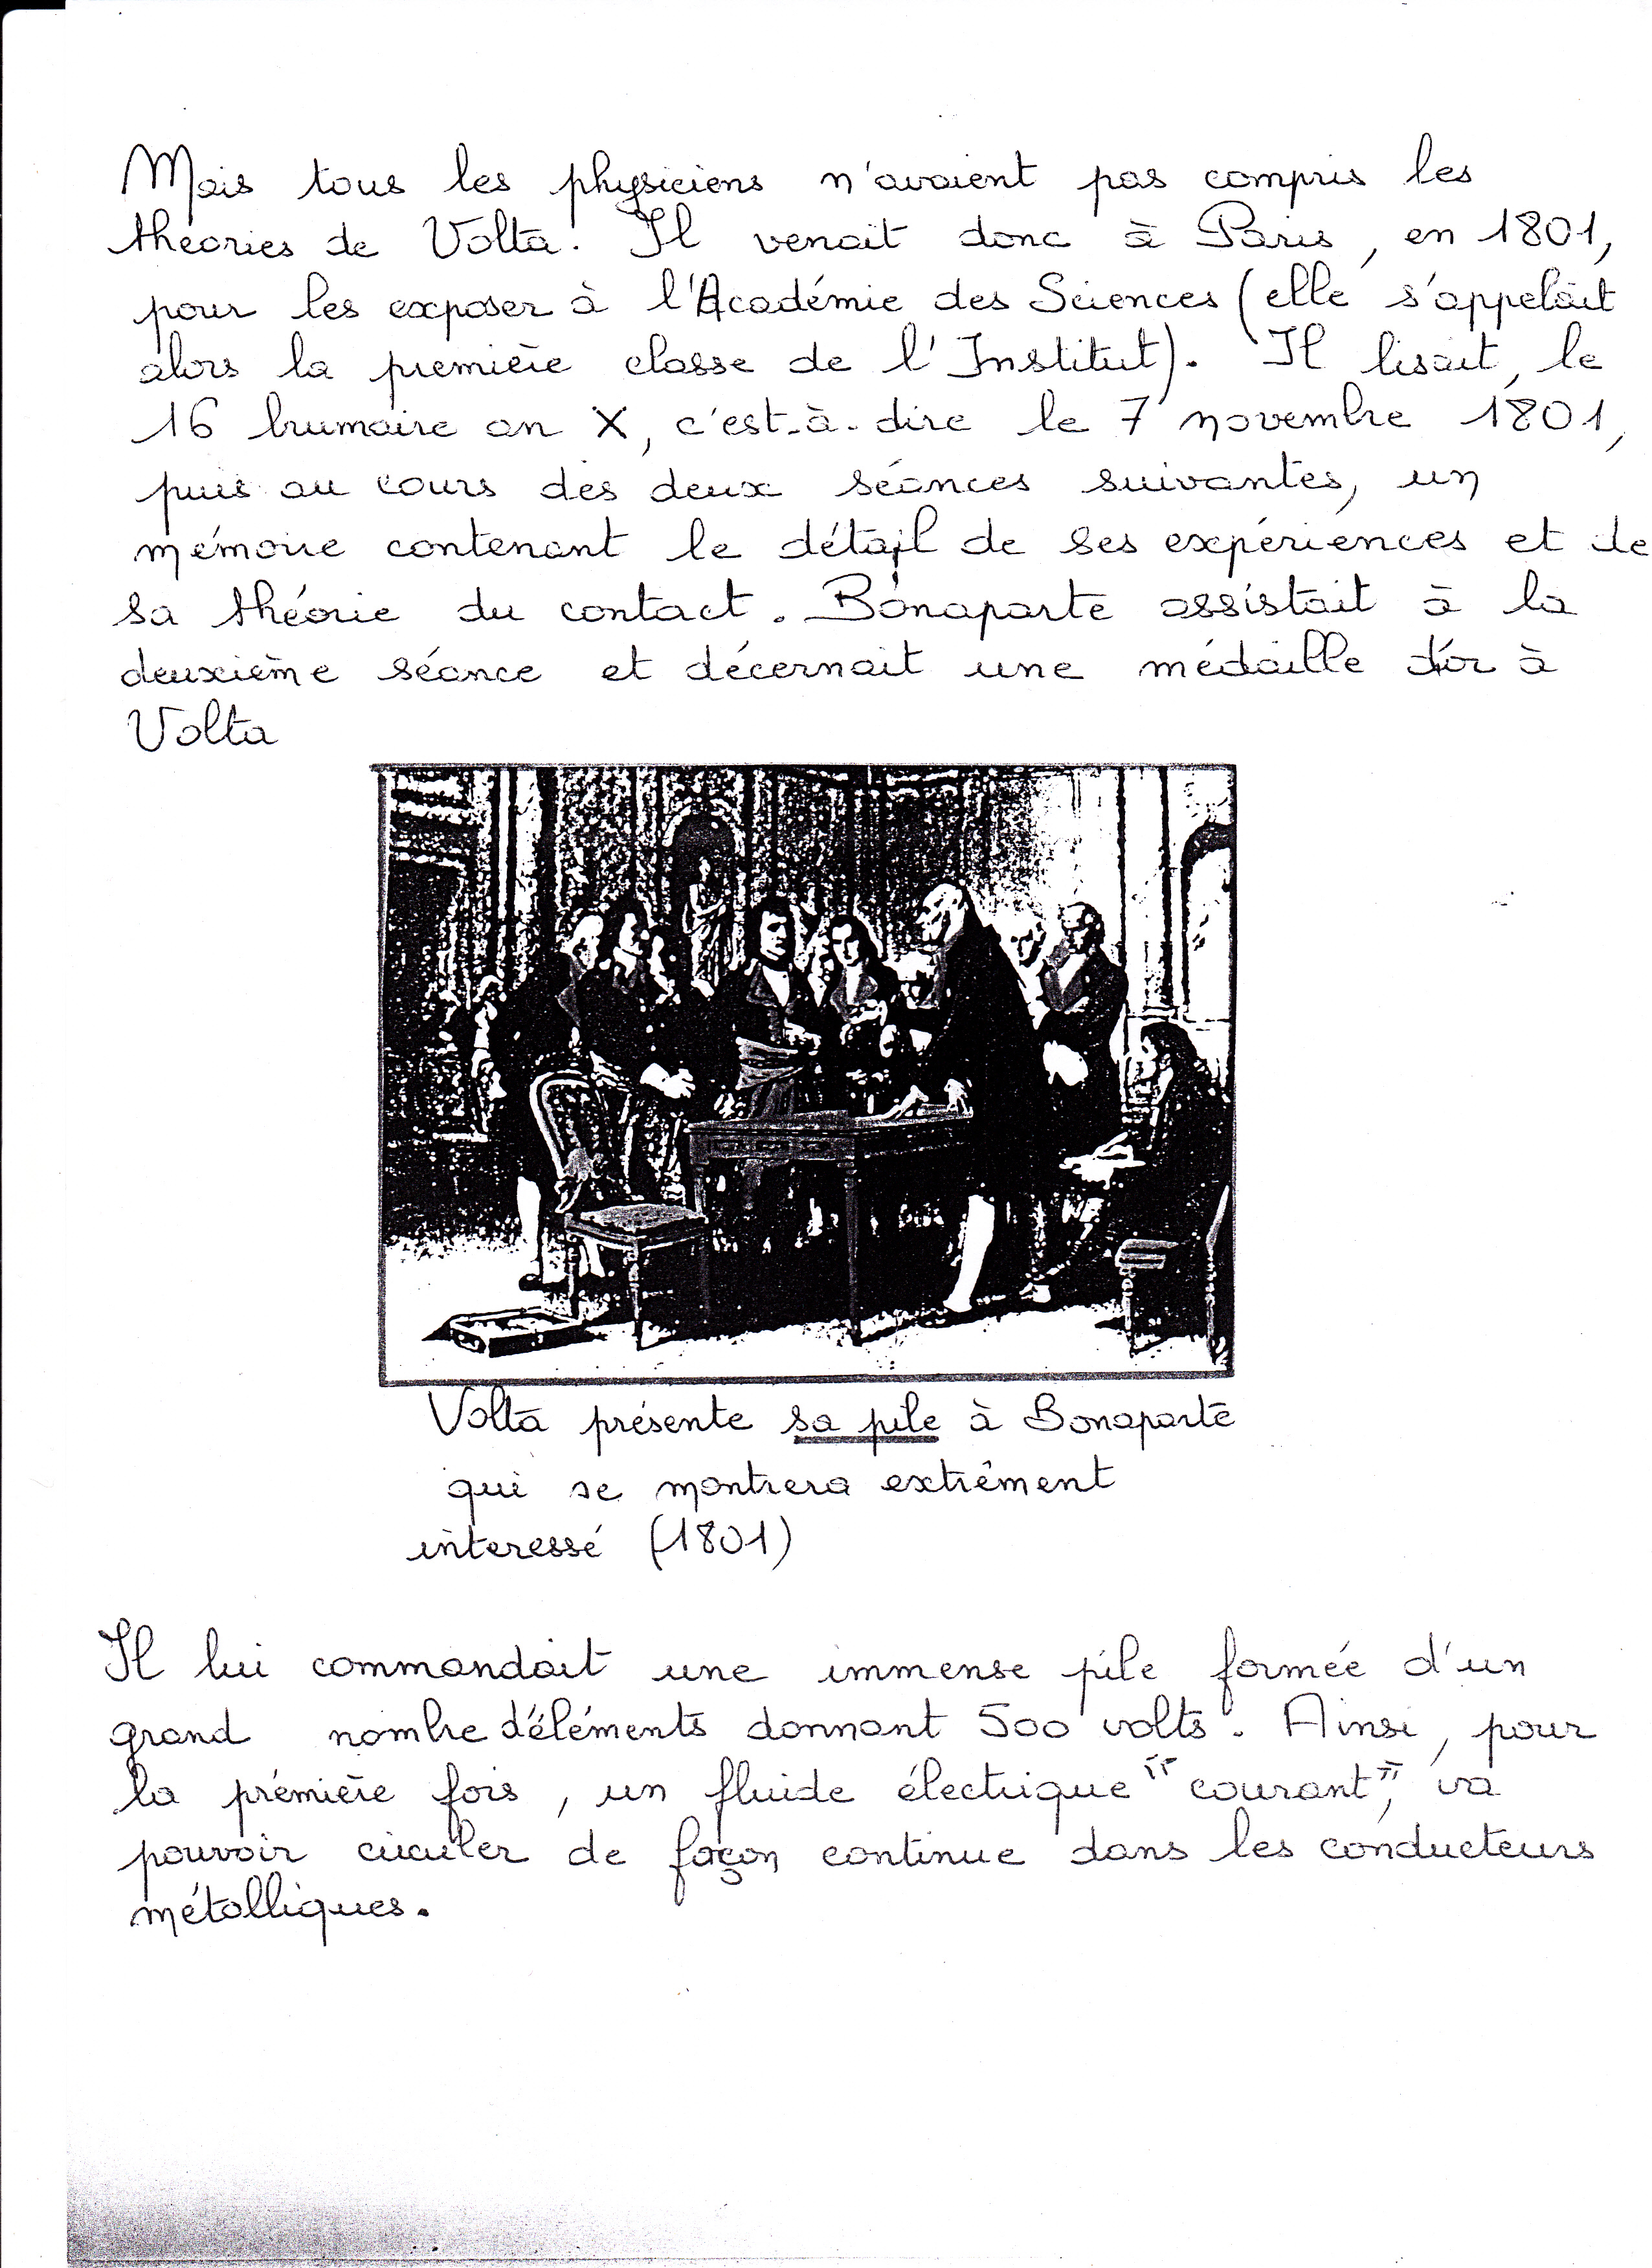 Mais tous les physiciens n'avaient pas compris les
théories de Volta. Il venait donc à Paris, en 1801,
pour les exposer à l'Académie des Sciences (elle s'appelait
alors la première classe de l'Institut). Il lisait, le
16 brumaire an X, c'est-à-dire le 7 novembre 1801,
puis au cours des deux séances suivantes, un
mémoire contenant le détail de ses expériences et de
sa théorie du contact. Bonaparte assistait à la
deuxième séance et décernait une médaille d'or à
Volta
Volta présente sa pile à Bonaparte
qui se montrera extrêment
interessé (1801)
Il lui commandait une immense pile formée d'un
grand nombre d'éléments donnant 500 volts. Ainsi, pour
la prémière fois, un fluide électrique "courant", va
pouvoir circuler de façon continue dans les conducteurs
métalliques.